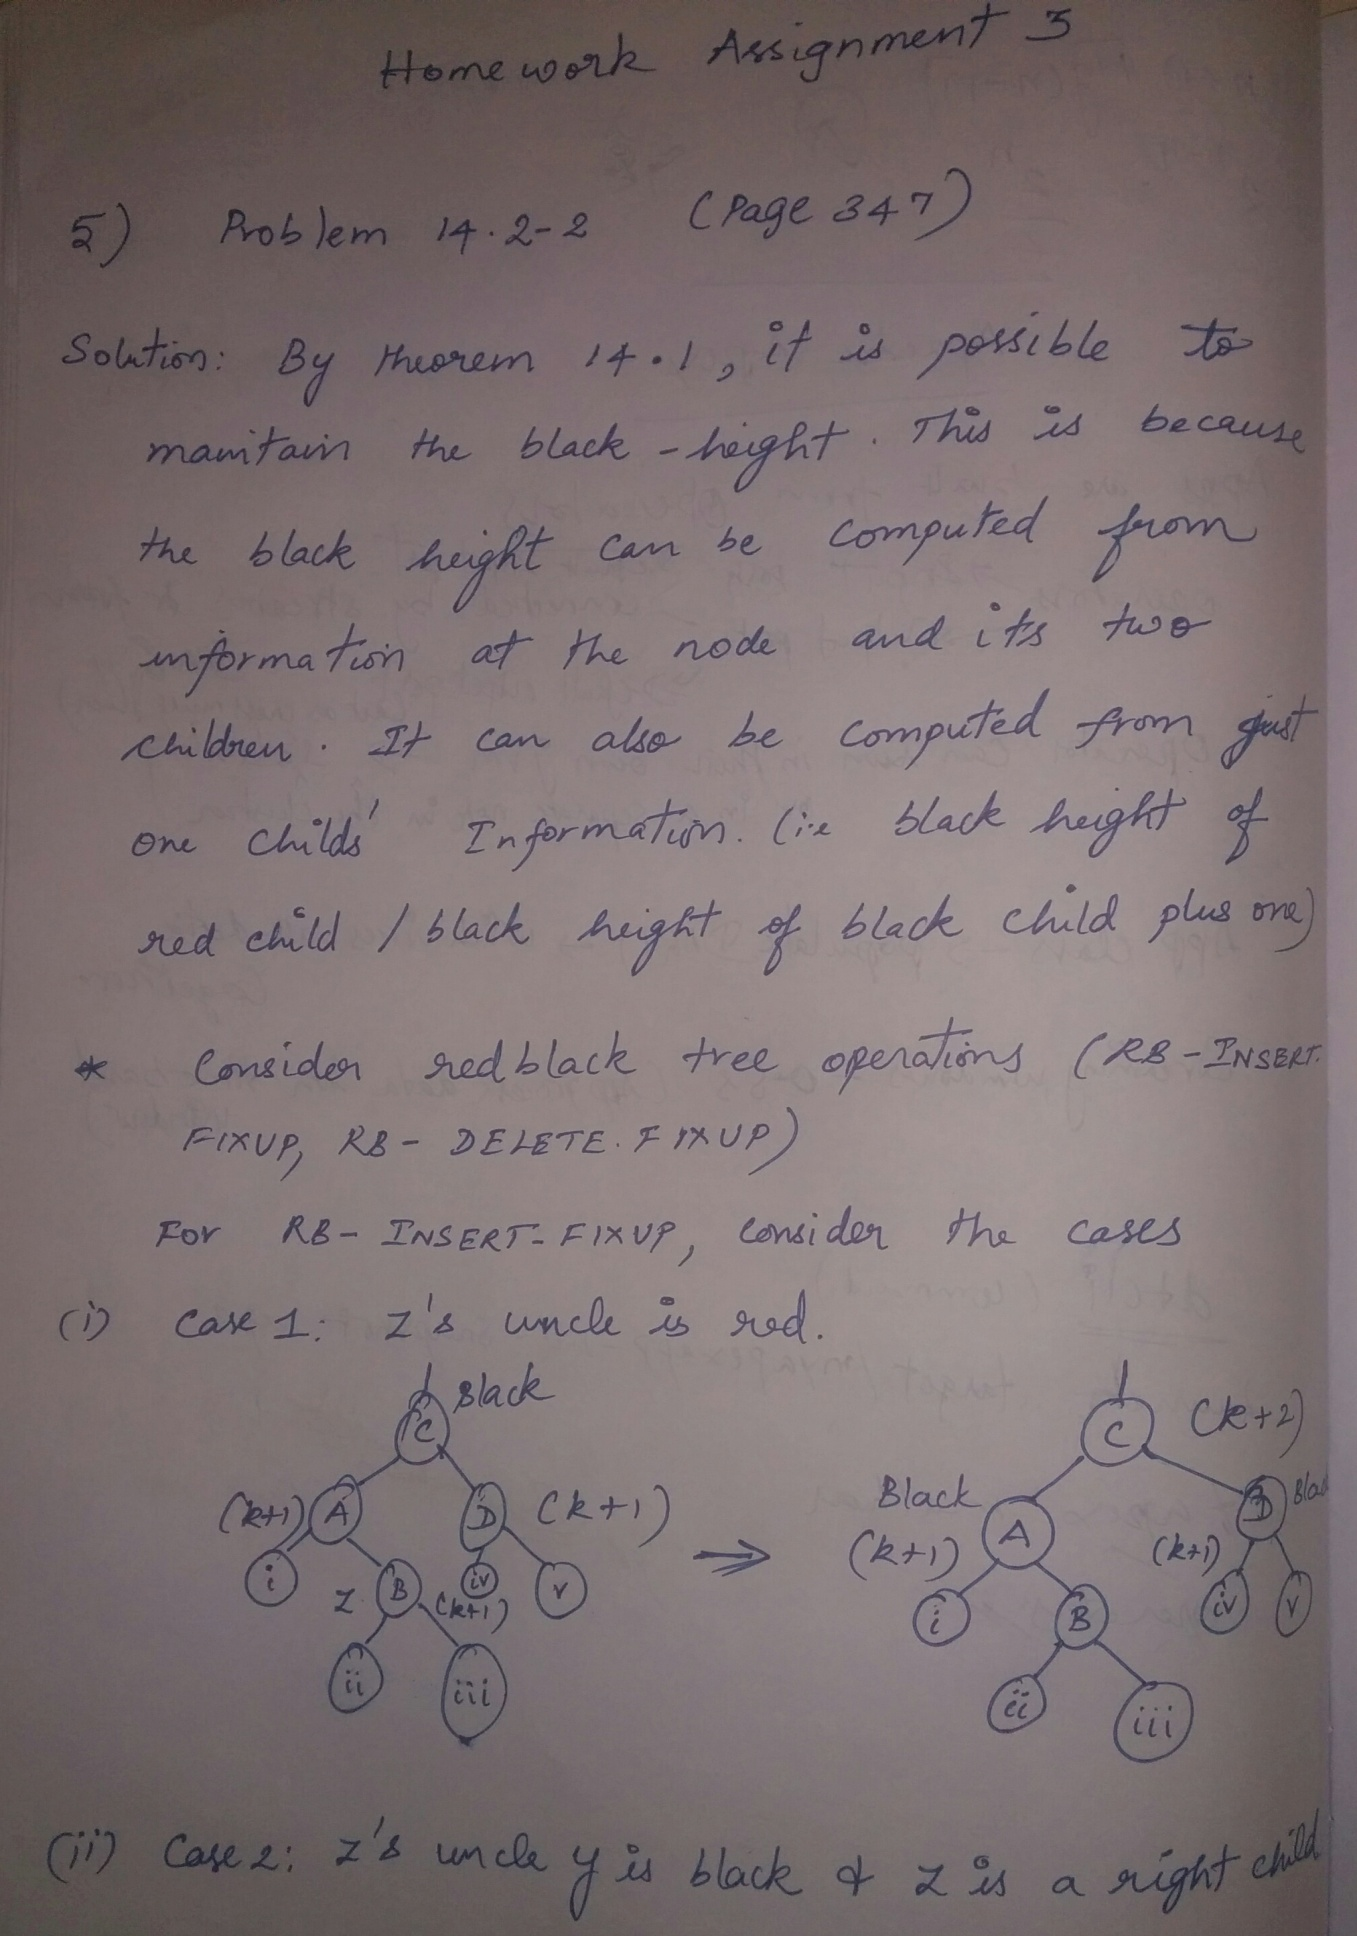 Homework Assignment 3
5) Problem 14.2-2 (Page 347)
Solution: By theorem 14.1, it is possible to
maintain the black-height. This is because
the black height can be computed from
information at the node and its two
children. It can also be computed from just
one childs' Information. (i.e black height of
red child / black height of black child plus one)
* Consider redblack tree operations (RB-INSERT-
FIXUP, RB-DELETE-FIXUP)
For RB-INSERT-FIXUP, consider the cases
(i) Case 1: z's uncle is red.
C Black
(k+1) A D (k+1)
i z B (k+1) iv v
ii iii
⇒
C (k+2)
Black
(k+1) A (k+1) D
i B iv v
ii iii
(ii) Case 2: z's uncle y is black & z is a right child